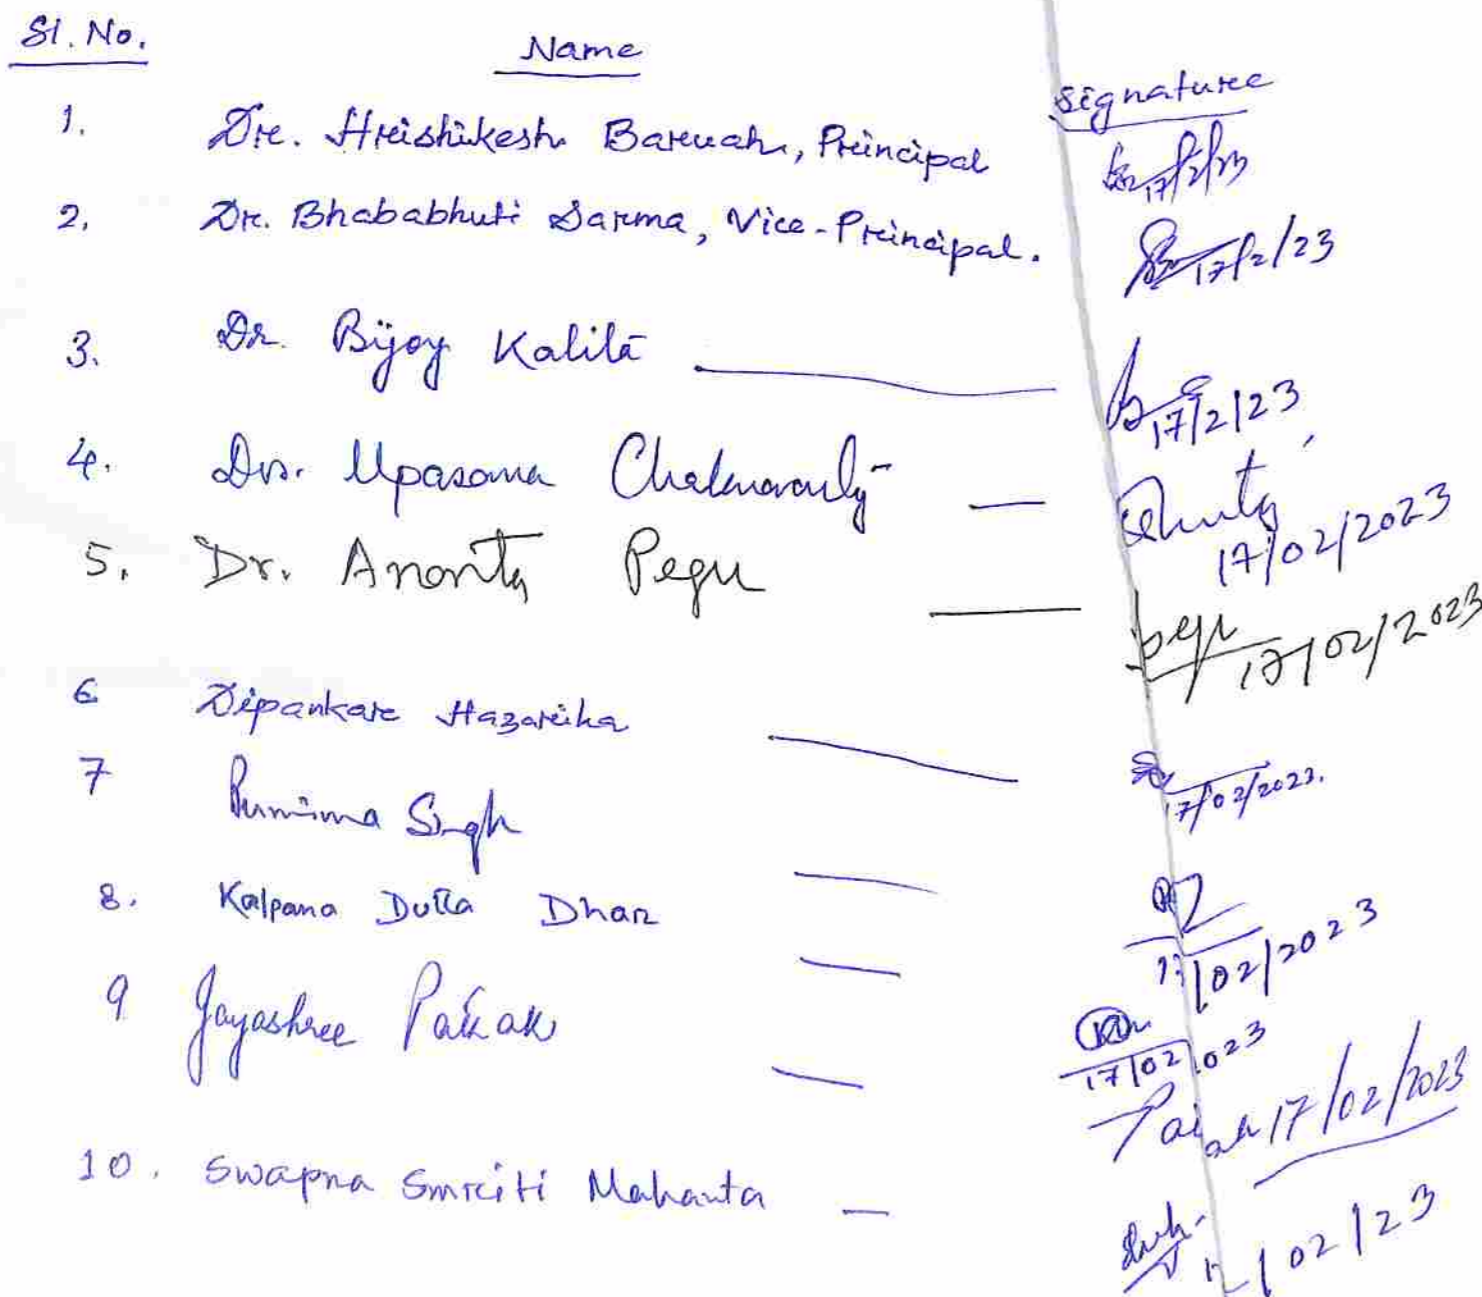 Sl. No. Name Signature
1. Dr. Hrishikesh Baruah, Principal 17/2/23
2. Dr. Bhababhuti Sarma, Vice-Principal. 17/2/23
3. Dr. Bijoy Kalita 17/2/23
4. Dr. Upasana Chakravarty 17/02/2023
5. Dr. Ananta Pegu Pegu 17/02/2023
6 Dipankar Hazarika 17/02/2023.
7 Purnima Singh 17/02/2023
8. Kalpana Dutta Dhar 17/02/2023
9 Jayashree 17/02/2023
10. Swapna Smriti Mahanta /02/23